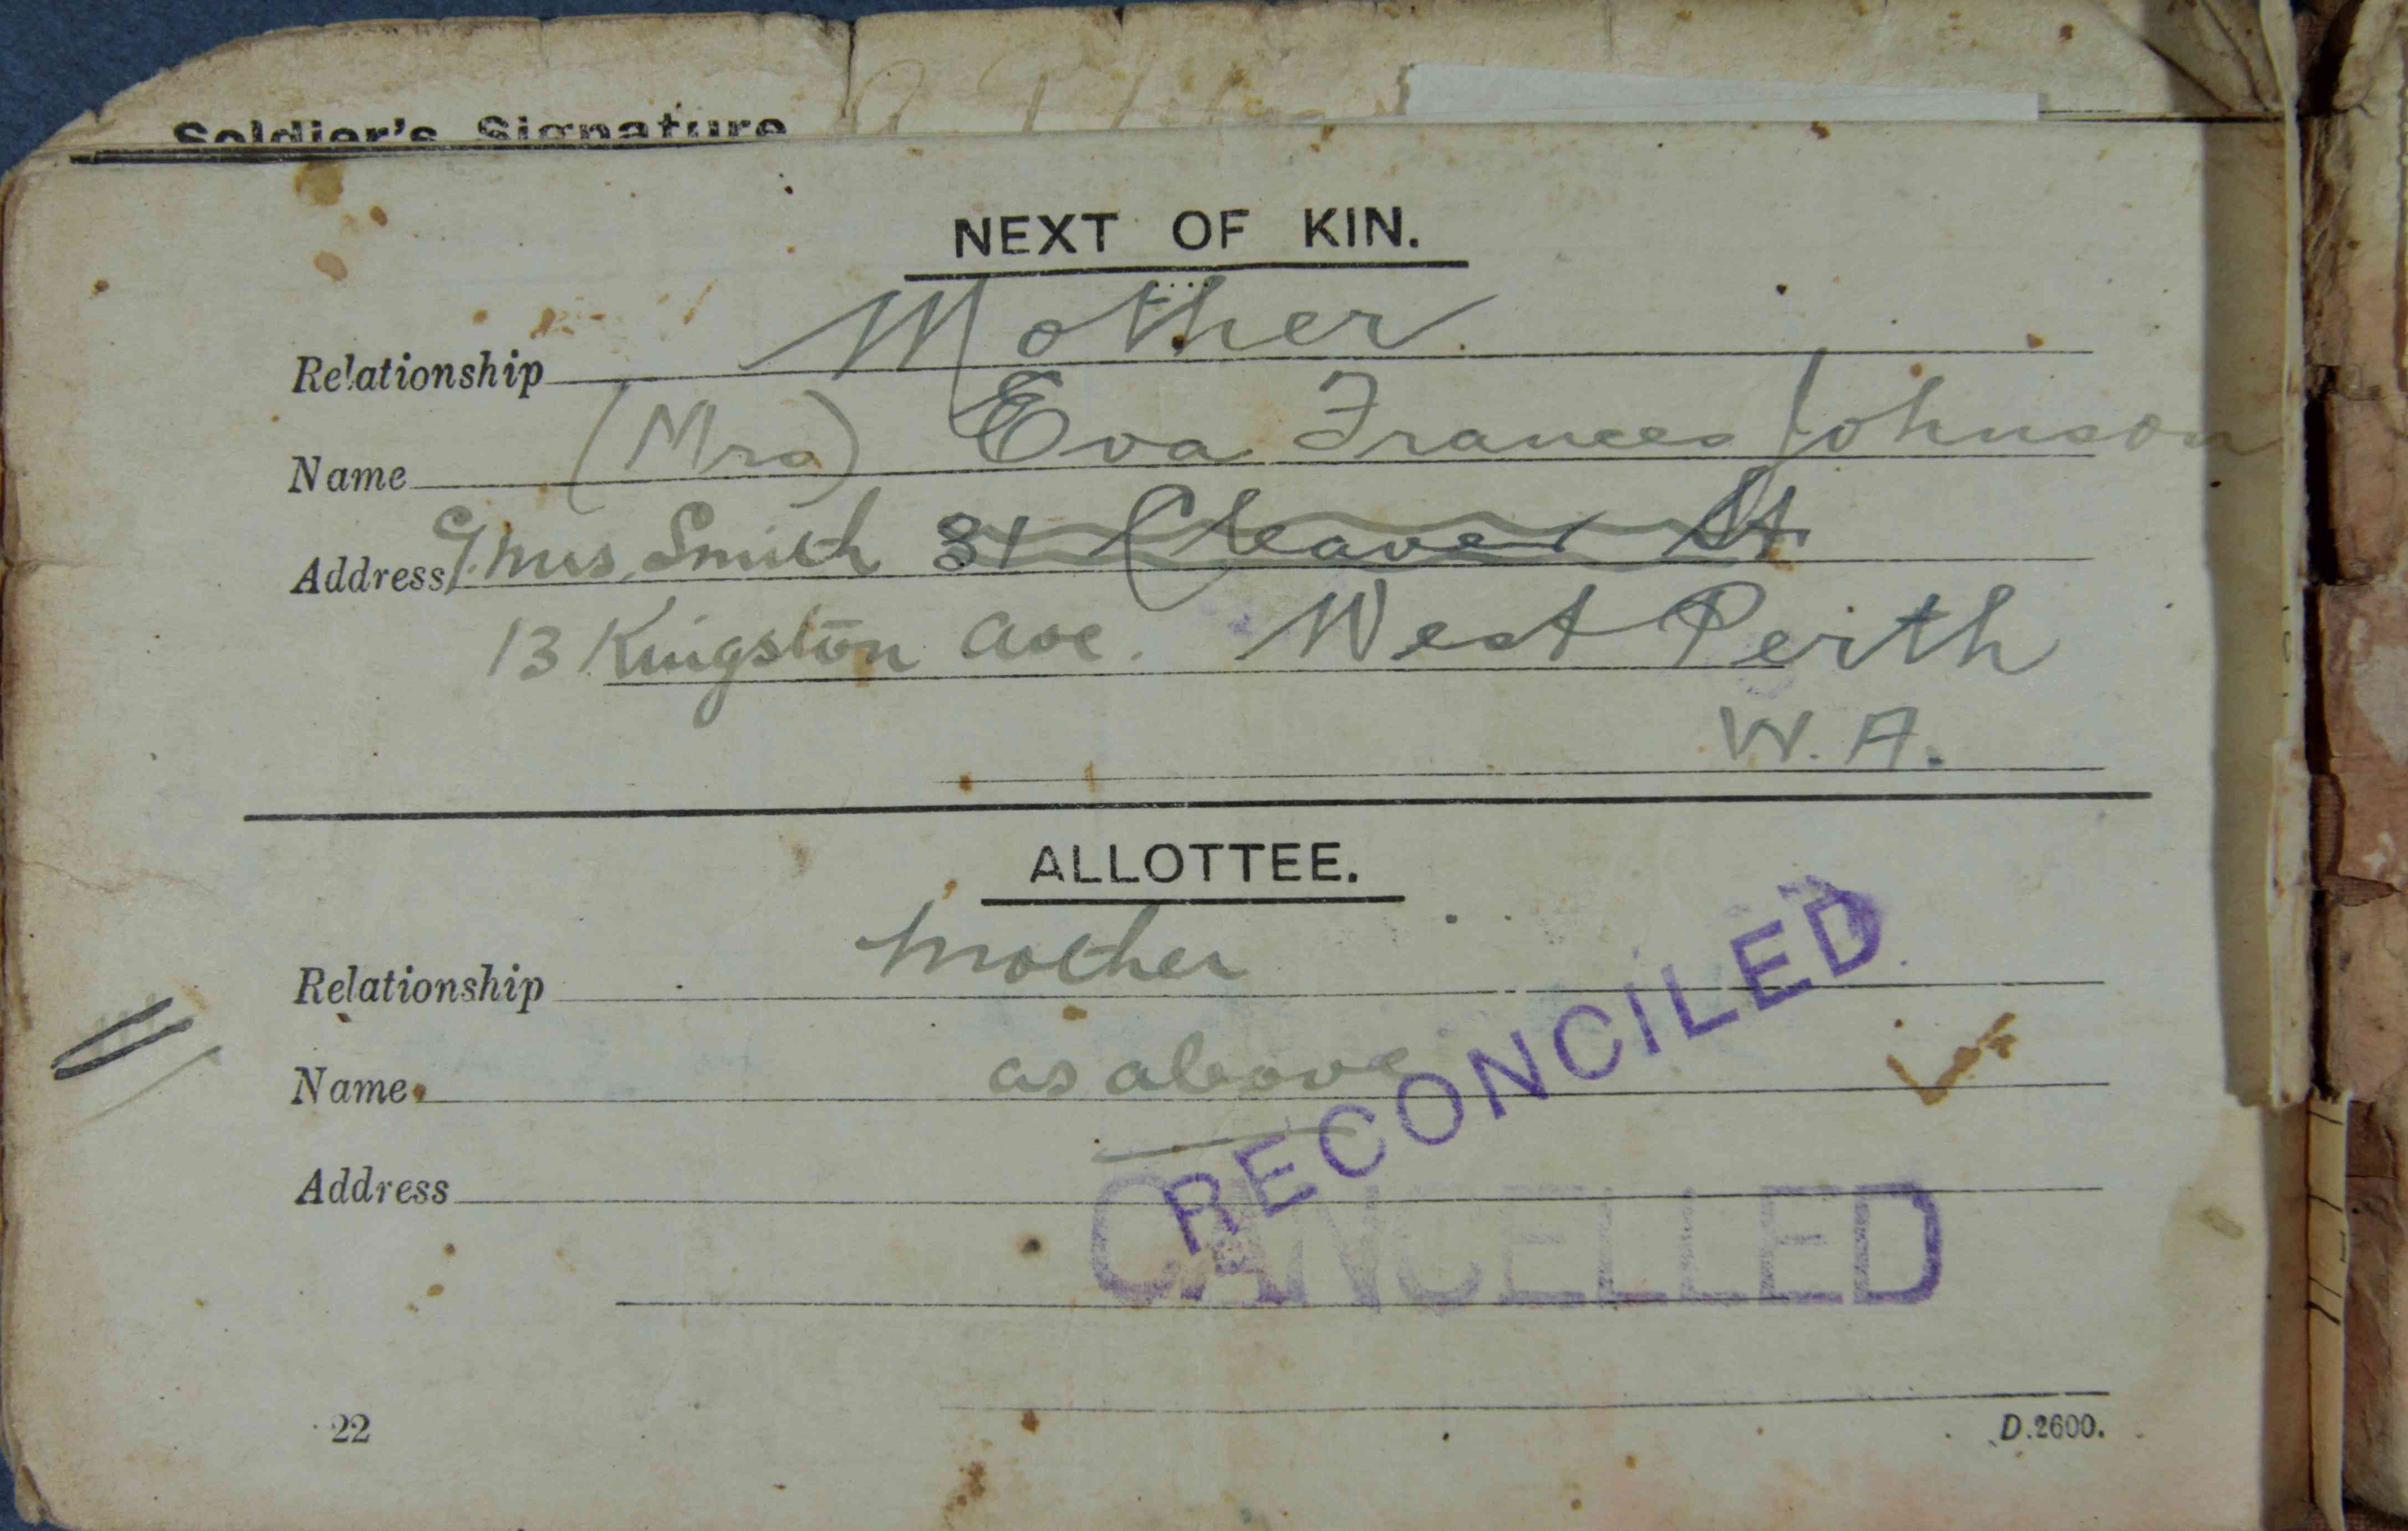 Soldier's Signature
NEXT OF KIN.
Relationship Mother.
Name (Mrs) Eva Frances Johnson
Address Mrs. Smith 31 Cleaver St
13 Kingston Ave. West Perth
W.A.
ALLOTTEE.
Relationship Mother
Name as above
Address
RECONCILED
CANCELLED
22 D.2600.